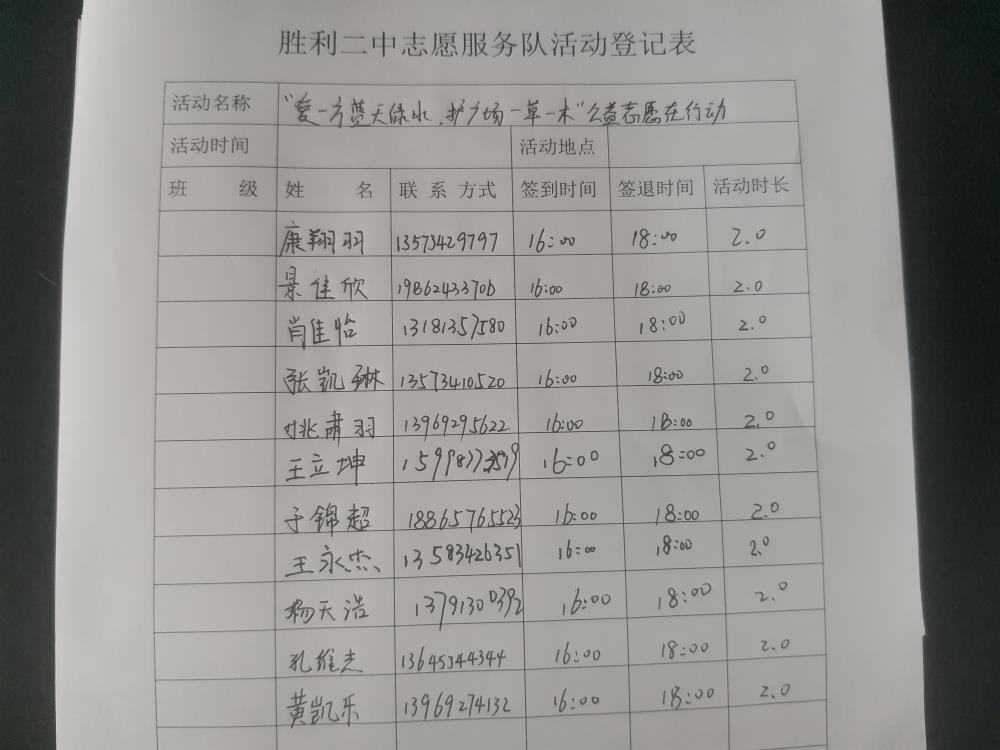 胜利二中志愿服务队活动登记表
活动名称 "爱一方蓝天绿水，护广场一草一木"公益志愿在行动
活动时间 活动地点
班 级 姓 名 联 系 方式 签到时间 签退时间 活动时长
康翔羽 13573429797 16:00 18:00 2.0
景佳欣 19862433706 16:00 18:00 2.0
肖佳怡 13181357580 16:00 18:00 2.0
张凯琳 13573410520 16:00 18:00 2.0
姚肃羽 13969295622 16:00 18:00 2.0
王立坤 16:00 18:00 2.0
于锦超 18865765523 16:00 18:00 2.0
王永杰 13583426351 16:00 18:00 2.0
杨天浩 13791300392 16:00 18:00 2.0
孔维杰 13645344344 16:00 18:00 2.0
黄凯乐 13969274132 16:00 18:00 2.0